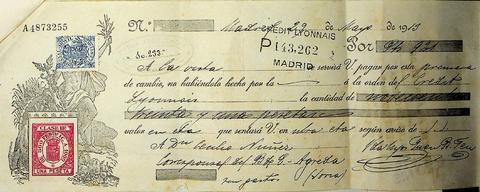 A4873255
N.º Madrid 29 de Mayo de 1913
CREDIT LYONNAIS
P 143,262
MADRID
Por Pts 931
A la vista se servirá V. pagar por esta primera
de cambio, no habiéndolo hecho por la á la orden del Credit
Lyonnais la cantidad de novecientas
treinta y una pesetas
valor en cta que sentará V. en cta según aviso de
A Dn Cecilio Nuñez
Corresponsal del Agreda
sin gastos (Soria)
CLASE 10ª
UNA PESETA